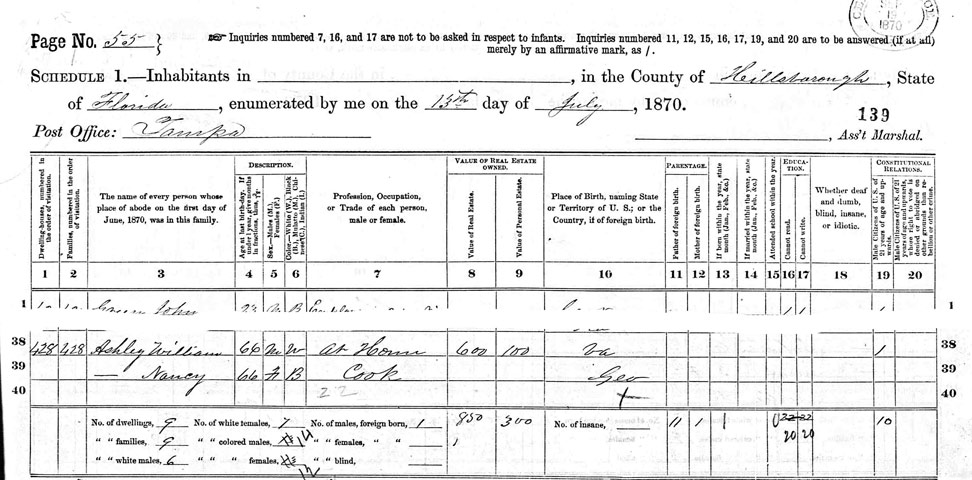 1870
Page No. 55 }
☞ Inquiries numbered 7, 16, and 17 are not to be asked in respect to infants. Inquiries numbered 11, 12, 15, 16, 17, 19, and 20 are to be answered (if at all)
merely by an affirmative mark, as /.
SCHEDULE 1.—Inhabitants in , in the County of Hillsborough, State
of Florida, enumerated by me on the 13th day of July, 1870.
139
Post Office: Tampa , Ass't Marshal.
Dwelling-houses, numbered in the order of visitation.
Families, numbered in the order of visitation.
The name of every person whose place of abode on the first day of June, 1870, was in this family.
DESCRIPTION.
Age at last birth-day. If under 1 year, give months in fractions, thus,
Sex.—Males (M.), Females (F.)
Color.—White (W.), Black (B.), Mulatto (M.), Chinese (C.), Indian (I.)
Profession, Occupation, or Trade of each person, male or female.
VALUE OF REAL ESTATE OWNED.
Value of Real Estate.
Value of Personal Estate.
Place of Birth, naming State or Territory of U. S.; or the Country, if of foreign birth.
PARENTAGE.
Father of foreign birth.
Mother of foreign birth.
If born within the year, state month (Jan., Feb., &c.)
If married within the year, state month (Jan., Feb., &c.)
Attended school within the year.
EDUCATION.
Cannot read.
Cannot write.
Whether deaf and dumb, blind, insane, or idiotic.
CONSTITUTIONAL RELATIONS.
Male Citizens of U.S. of 21 years of age and upwards.
Male Citizens of U.S. of 21 years of age and upwards, whose right to vote is denied or abridged on other grounds than rebellion or other crime.
1 2 3 4 5 6 7 8 9 10 11 12 13 14 15 16 17 18 19 20
1 Green John B 1
38 428 428 Ashley William 66 M W At Home 600 100 Va 1 38
39 — Nancy 66 F B Cook Geo 39
40 22 40
No. of dwellings, 9 No. of white females, 7 No. of males, foreign born, 1 850 300 No. of insane, 11 1 1 22 22 10
" " families, 9 " " colored males, 14 " " females, " " 20 20
" " white males, 6 " " " females, 12 " " blind,